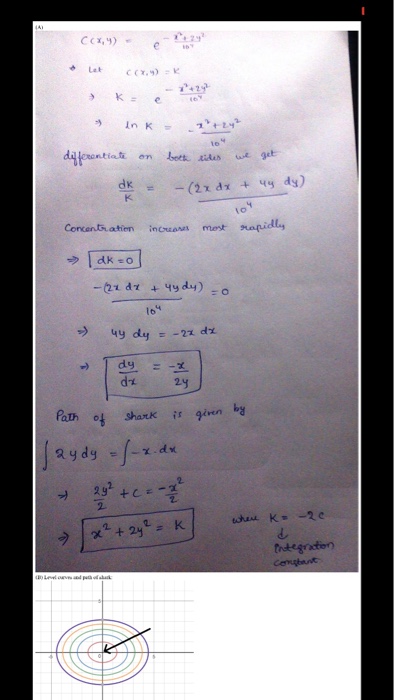 (A)
C(x,y) = e^(-(x²+2y²)/10⁴)
* Let C(x,y) = K
⇒ K = e^(-(x²+2y²)/10⁴)
⇒ ln K = -(x²+2y²)/10⁴
differentiate on both sides we get
dK/K = -(2x dx + 4y dy)/10⁴
Concentration increases most rapidly
⇒ dK=0
-(2x dx + 4y dy)/10⁴ = 0
⇒ 4y dy = -2x dx
⇒ dy/dx = -x/2y
Path of shark is given by
∫2y dy = ∫-x.dx
⇒ 2y²/2 + c = -x²/2
⇒ x² + 2y² = K where K = -2c
↓
Integration
constant
(B) Level curves and path of shark: